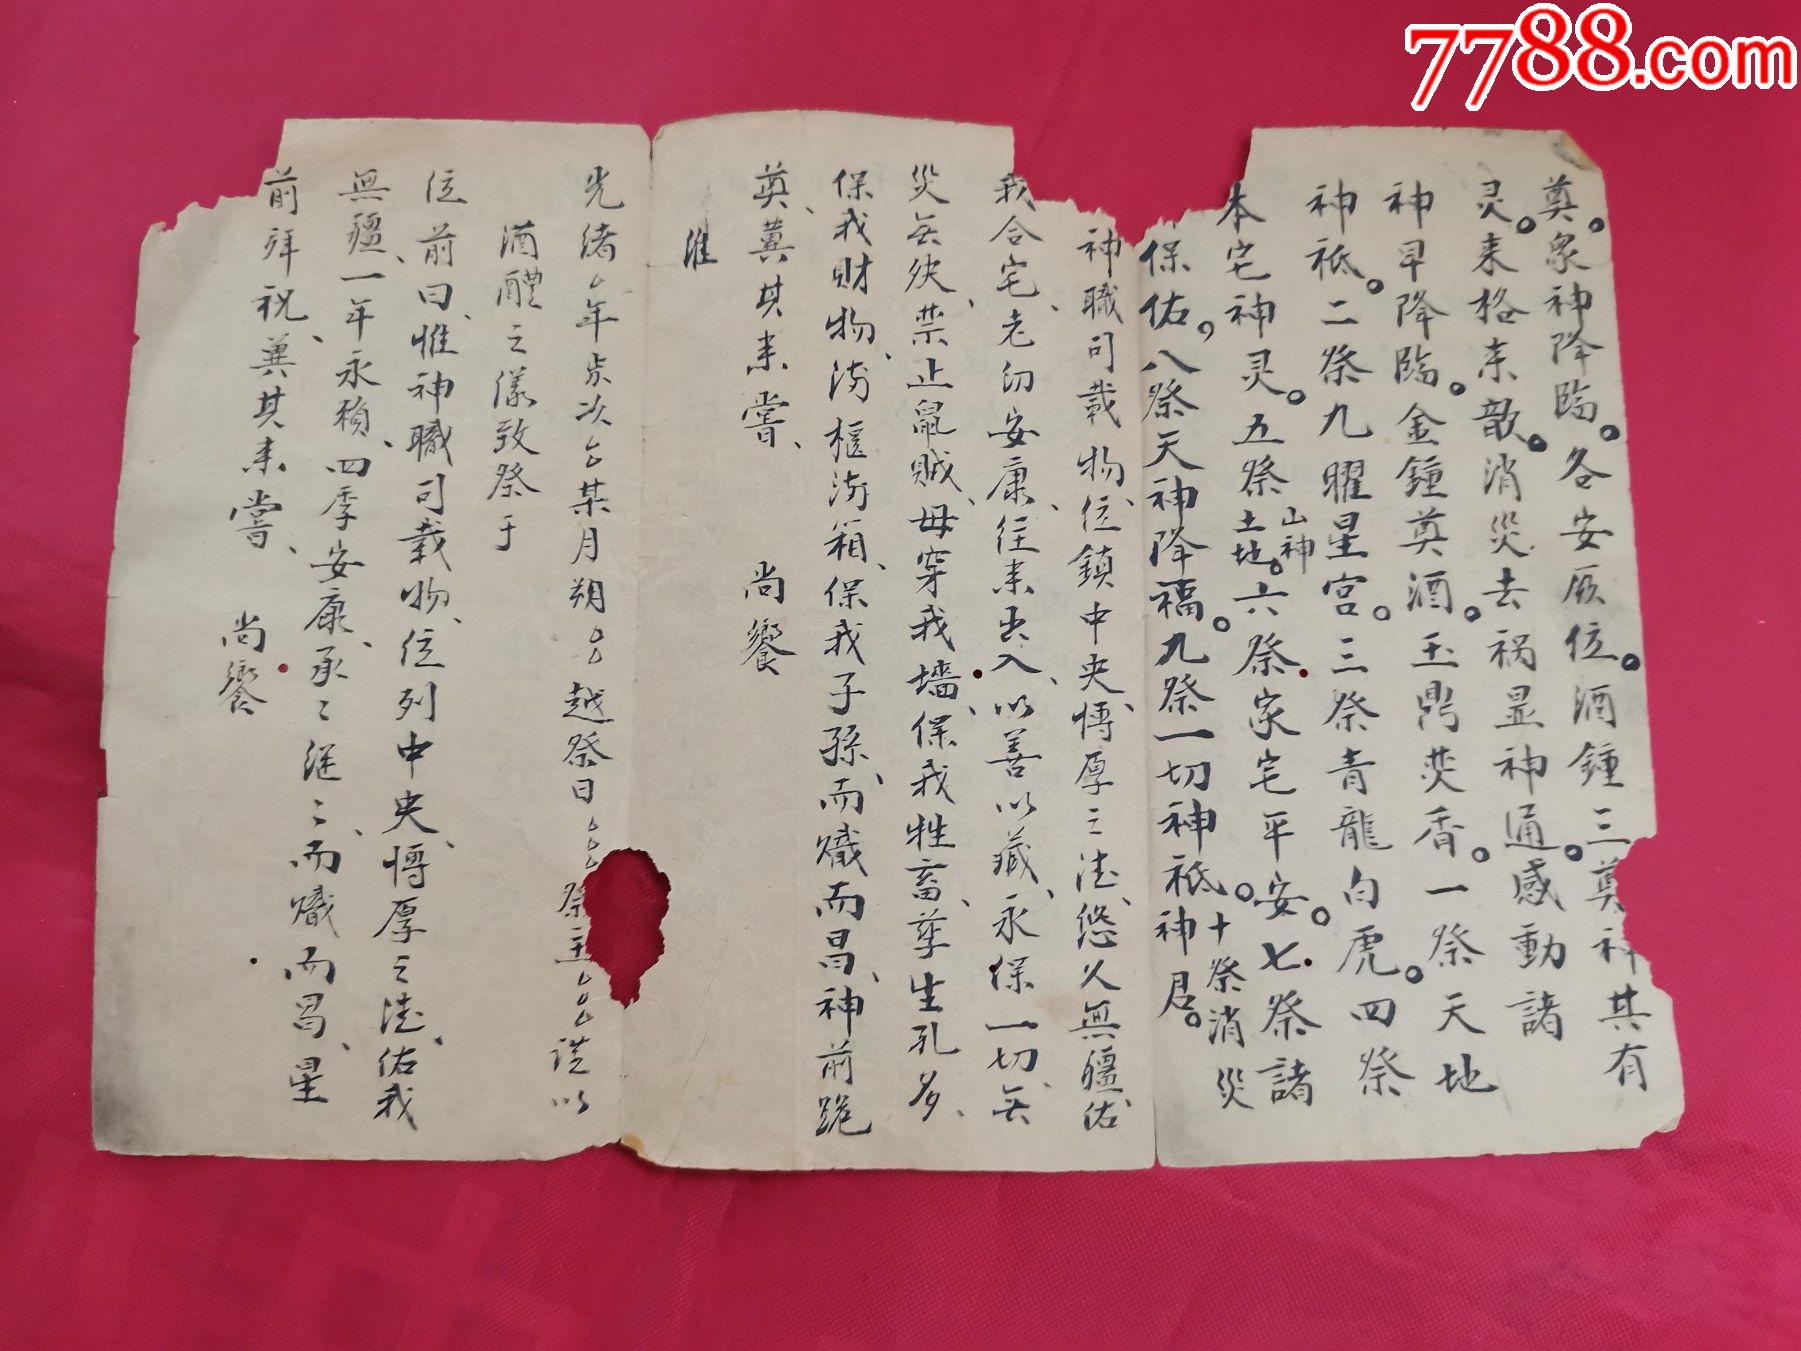 7788.com
奠。眾神降臨。各安原位。酒鍾三奠神其有
灵。来格来歆。消災去祸显神通。感動諸
神早降臨。金鍾奠酒。玉鼎焚香。一祭天地
神祇。二祭九曜星宮。三祭青龍白虎。四祭
本宅神灵。五祭山神土地。六祭家宅平安。七祭諸
保佑。八祭天神降福。九祭一切神祇神君。十祭消災
神職司載物、位鎮中央、博厚之德、悠久無疆、佑
我合宅、老幼安康、往来出入、以善以藏、永保一切、無
災無殃、禁止鼠賊、毋穿我墻、保我牲畜、孳生乳多、
保我財物、滿櫃滿箱、保我子孫、而熾而昌、神前跪
奠、冀其来嘗、尚饗
維
光緒厶年歲次厶厶某月朔厶厶越祭日厶厶厶祭主厶厶厶謹以
酒醴之儀致祭于
位前曰、惟神職司載物、位列中央、博厚之德、佑我
無疆、一年永禎、四季安康、承承繼繼、而熾而昌、星
前拜祝、冀其来嘗、尚饗